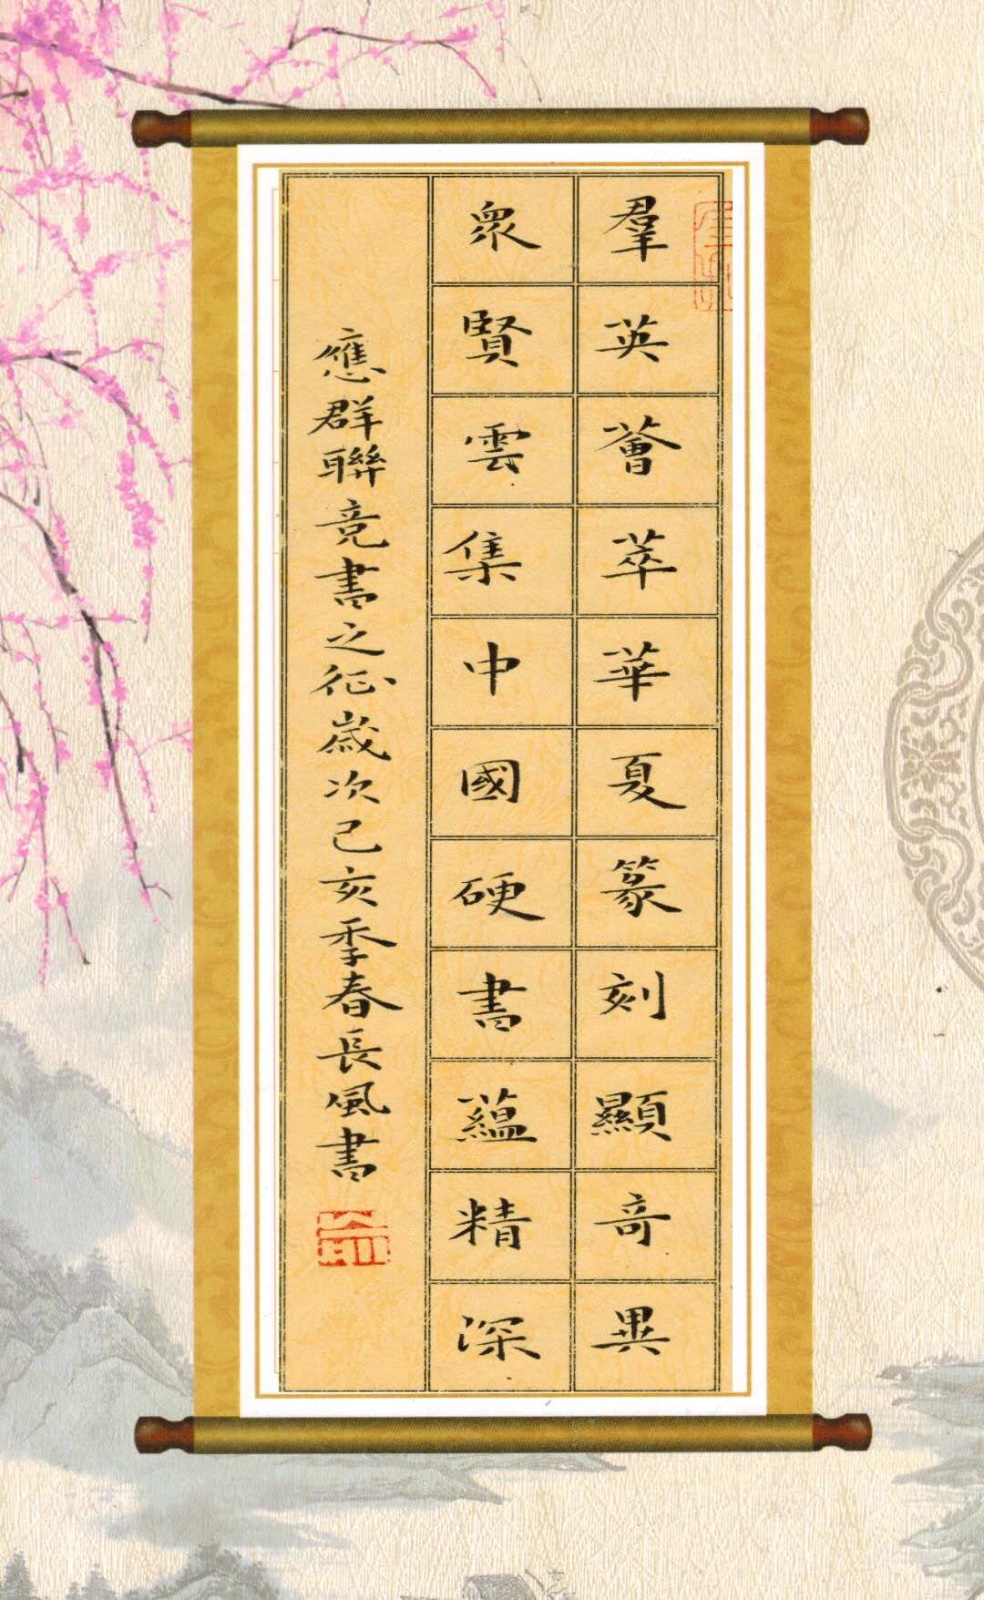 羣英薈萃華夏篆刻顯奇異
眾賢雲集中國硬書蘊精深
應群聯竞書之征歲次己亥季春長風書